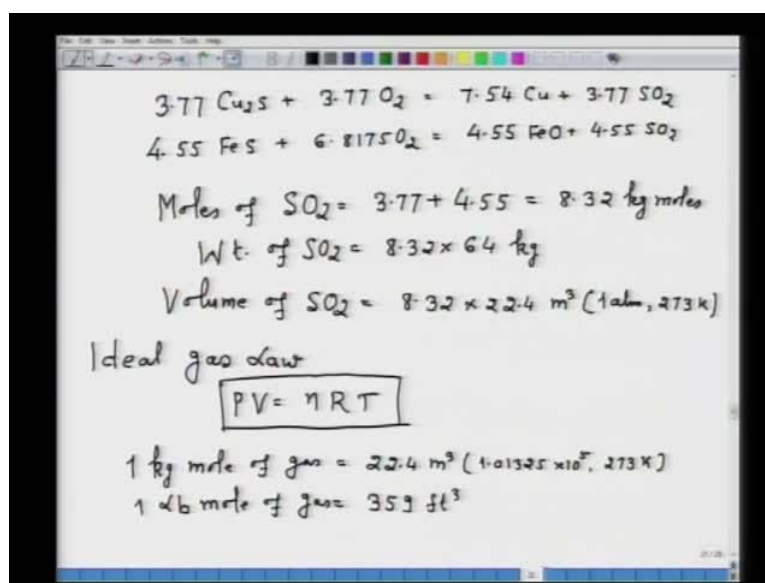 3.77 Cu2S + 3.77 O2 = 7.54 Cu + 3.77 SO2
4.55 FeS + 6.8175 O2 = 4.55 FeO + 4.55 SO2
Moles of SO2 = 3.77 + 4.55 = 8.32 kg moles
Wt. of SO2 = 8.32 x 64 kg
Volume of SO2 = 8.32 x 22.4 m³ (1 atm, 273 K)
Ideal gas Law
PV = nRT
1 kg mole of gas = 22.4 m³ (1.01325 x10⁵, 273 K)
1 lb mole of gas = 359 ft³